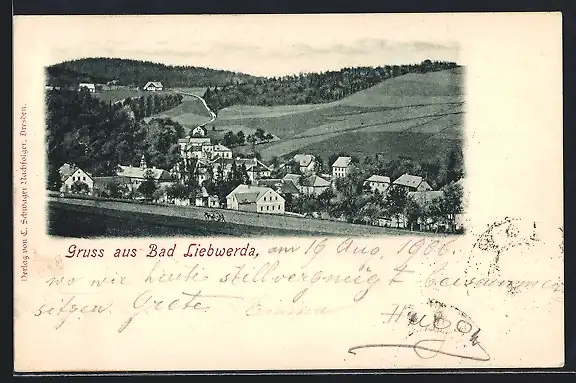 Verlag von C. Schwager Nachfolger, Dresden.
Gruss aus Bad Liebwerda, am 19 Aug. 1900
wo wir heute stillvergnügt beisammen
sitzen. Grete. Emma
Hugo